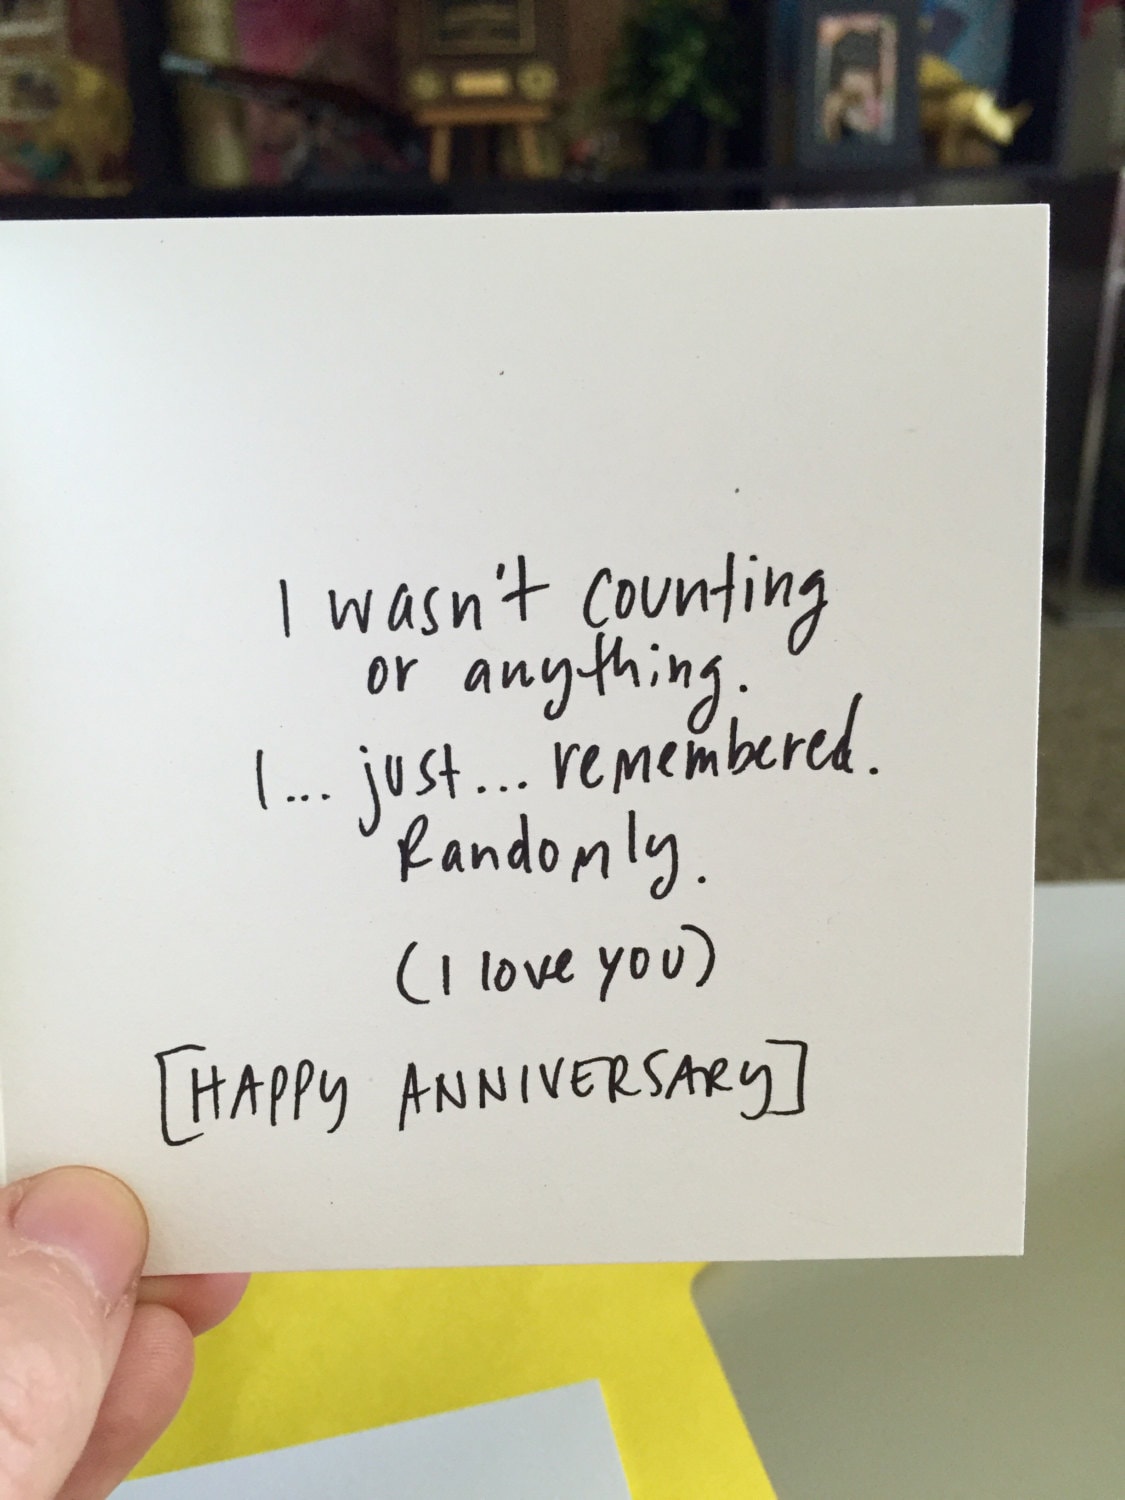 I wasn't counting
or anything.
I... just... remembered.
Randomly.
(I love you)
[HAPPY ANNIVERSARY]